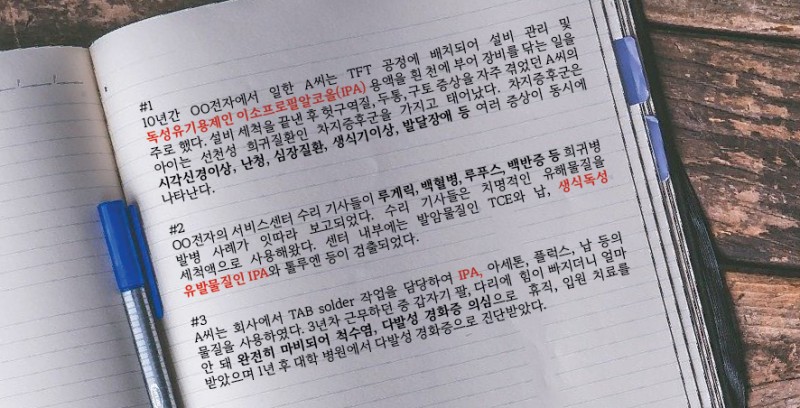 #1
10년간 OO전자에서 일한 A씨는 TFT 공정에 배치되어 설비 관리 및
독성유기용제인 이소프로필알코올(IPA) 용액을 흰 천에 부어 장비를 닦는 일을
주로 했다. 설비 세척을 끝낸 후 헛구역질, 두통, 구토 증상을 자주 겪었던 A씨의
아이는 선천성 희귀질환인 차지증후군을 가지고 태어났다. 차지증후군은
시각신경이상, 난청, 심장질환, 생식기이상, 발달장애 등 여러 증상이 동시에
나타난다.
#2
OO전자의 서비스센터 수리 기사들이 루게릭, 백혈병, 루푸스, 백반증 등 희귀병
발병 사례가 잇따라 보고되었다. 수리 기사들은 치명적인 유해물질을
세척액으로 사용해왔다. 센터 내부에는 발암물질인 TCE와 납, 생식독성
유발물질인 IPA와 톨루엔 등이 검출되었다.
#3
A씨는 회사에서 TAB solder 작업을 담당하여 IPA, 아세톤, 플럭스, 납 등의
물질을 사용하였다. 3년차 근무하던 중 갑자기 팔, 다리에 힘이 빠지더니 얼마
안 돼 완전히 마비되어 척수염, 다발성 경화증 의심으로 휴직, 입원 치료를
받았으며 1년 후 대학 병원에서 다발성 경화증으로 진단받았다.